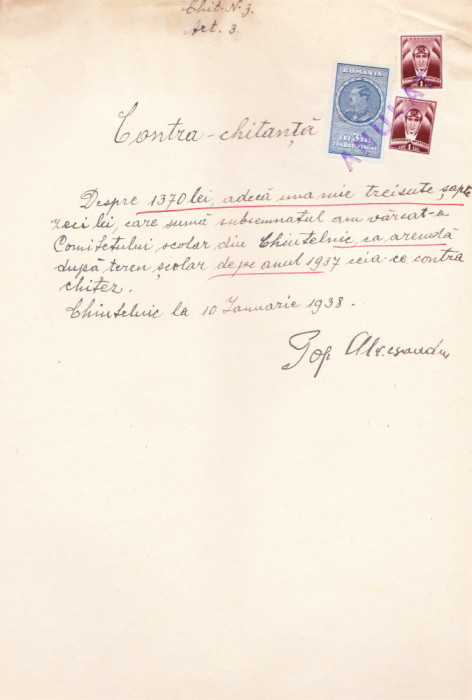 Chit. N. 3.
Art. 3.
ROMANIA
3 LEI 3
TIMBRU FISCAL
1
1
ANULAT
Contra-chitanță
Despre 1370 lei, adecă una mie treisute șapte
zeci lei, care sumă subsemnatul am vărsat-o
Comitetului școlar din Chintelnic, ca arendă
după teren școlar depe anul 1937 ceia-ce contra
chitez.
Chintelnic la 10 Ianuarie 1938.
Pop Alecsandru